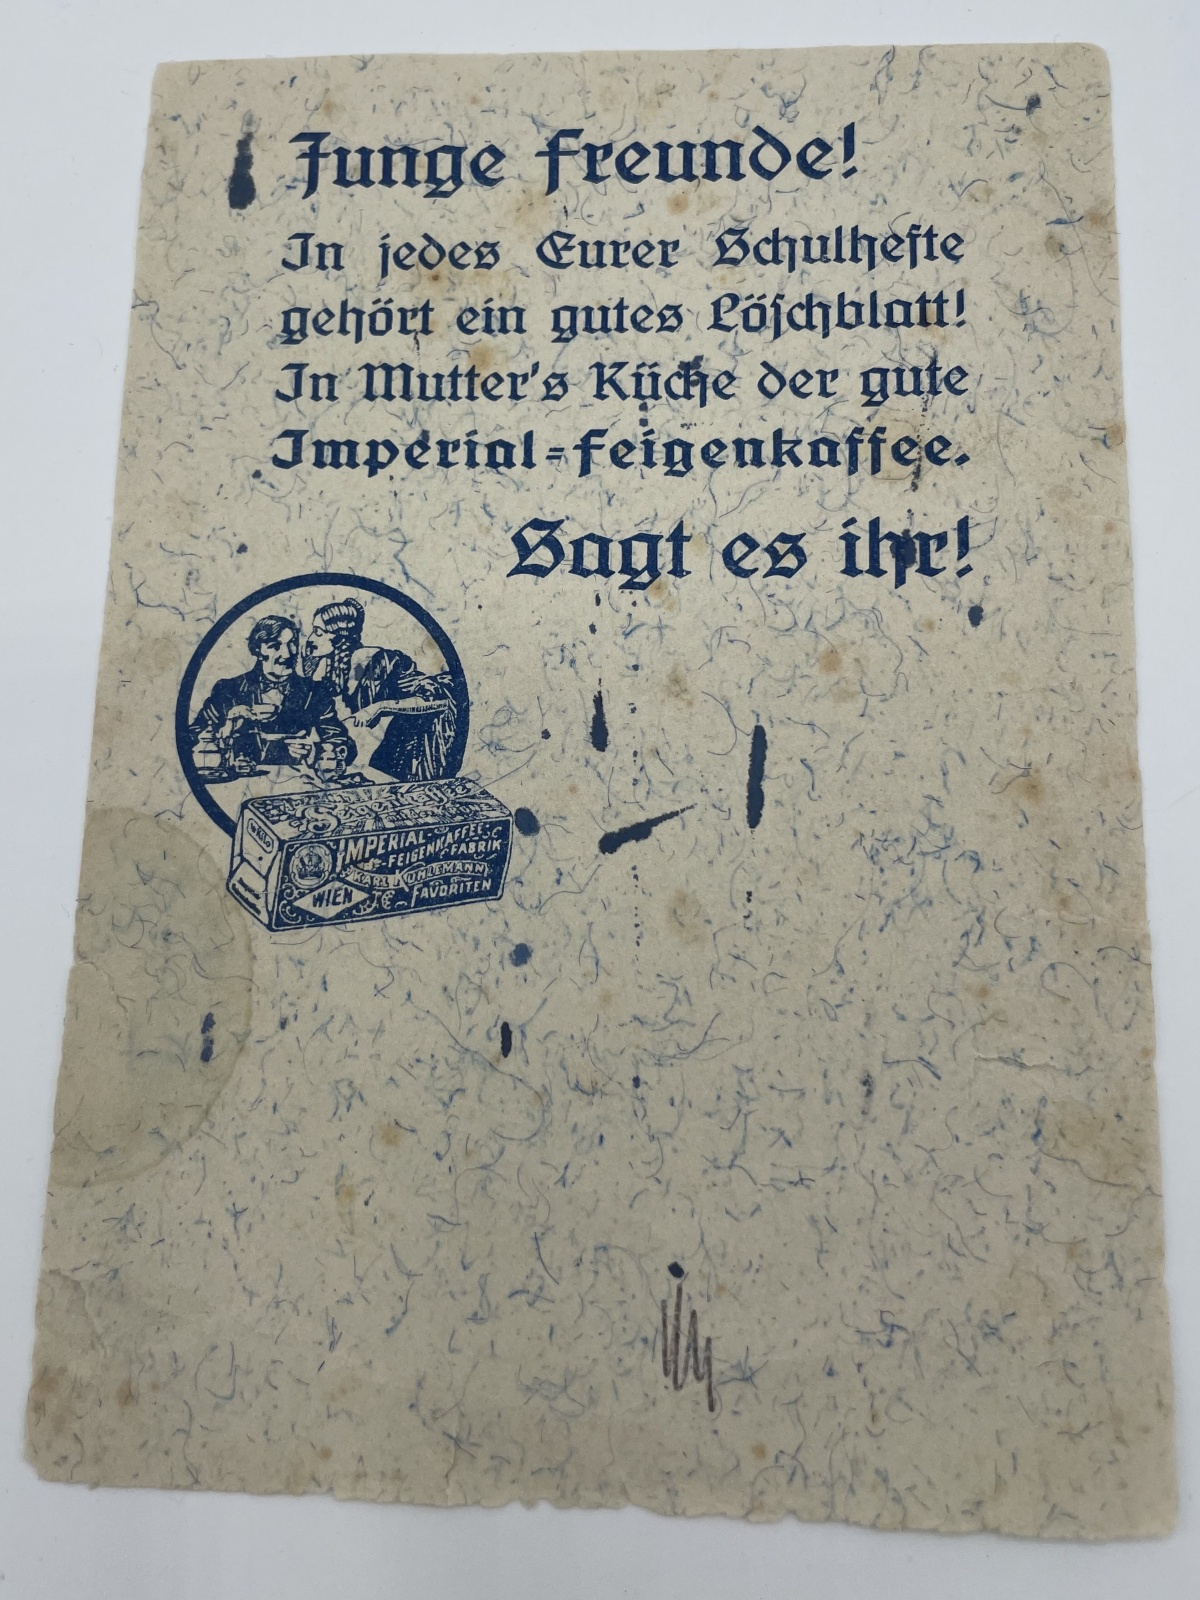 Junge Freunde!
In jedes Eurer Schulhefte
gehört ein gutes Löschblatt!
In Mutter's Küche der gute
Imperial-Feigenkaffee.
Sagt es ihr!
IMPERIAL-KAFFEE
FEIGENKAFFEE-FABRIK
KARL KUHLEMANN
WIEN FAVORITEN